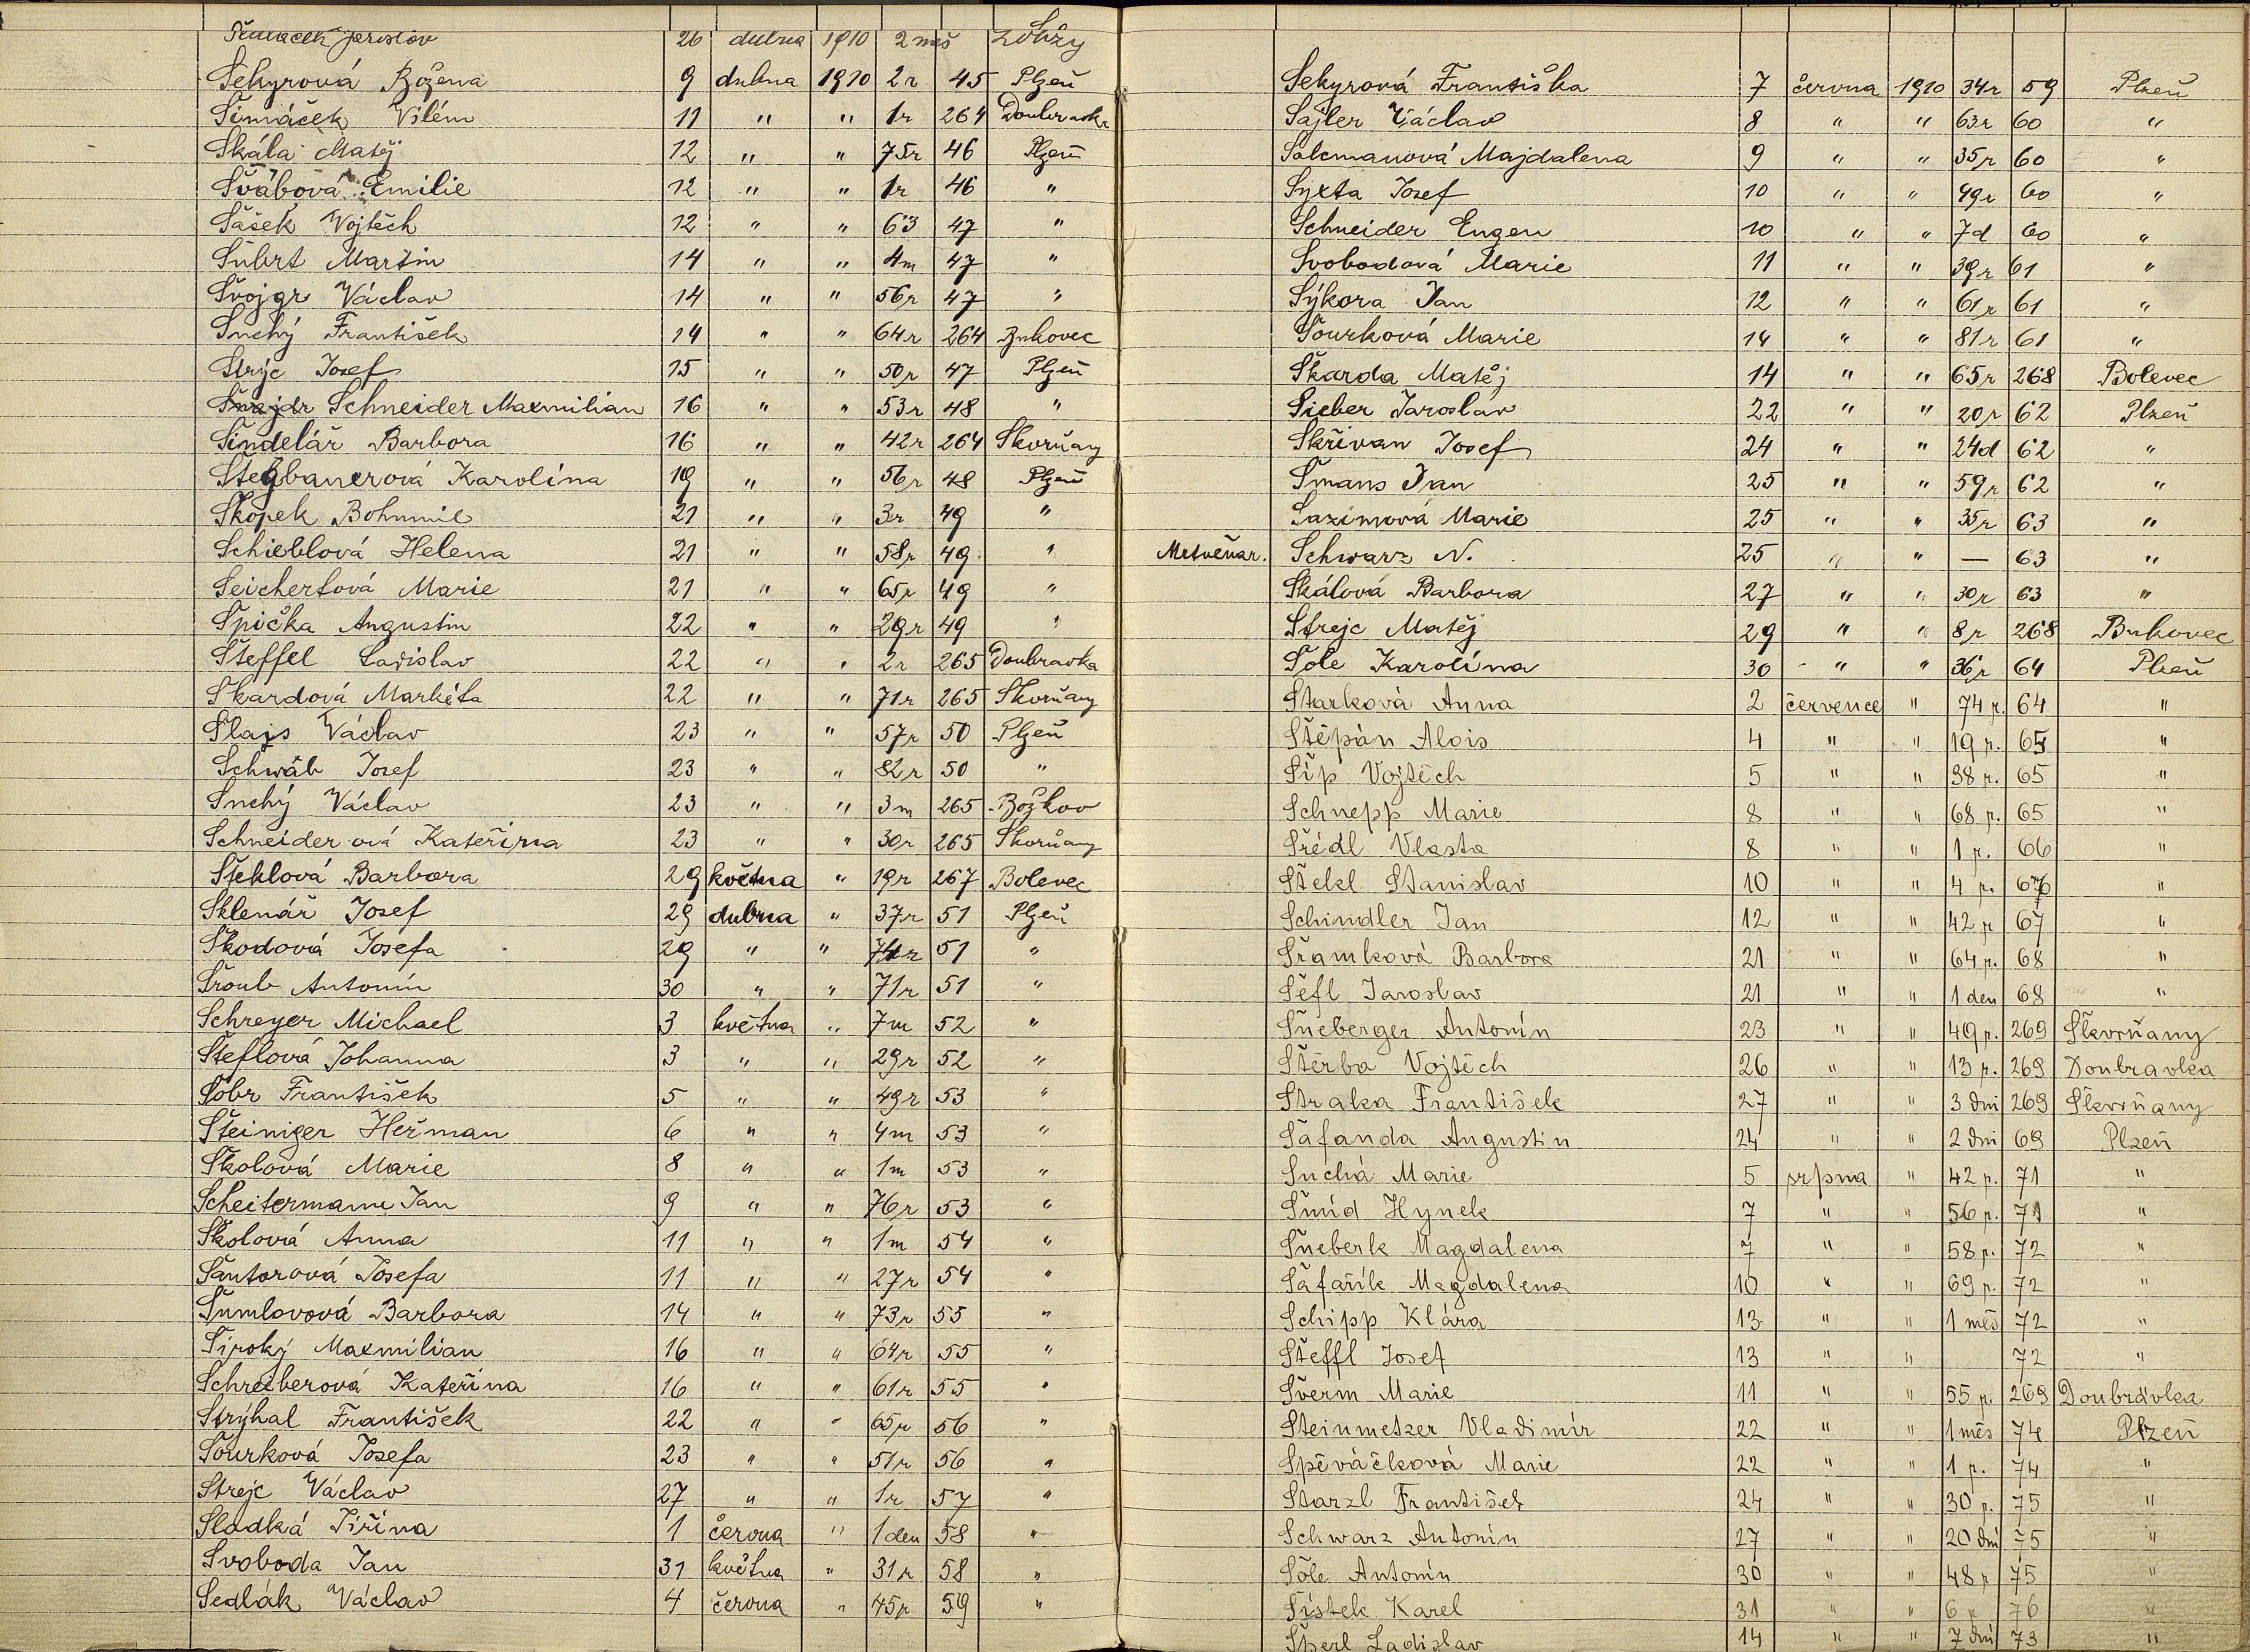 Jaroslav 26 dubna 1910 2 měs Lobzy
Sekyrová Božena 9 dubna 1910 2r 45 Plzeň
Šimáček Vilém 11 " " 1r 264 Doubravka
Skála Matěj 12 " " 75r 46 Plzeň
Švábová Emilie 12 " " 1r 46 "
Šašek Vojtěch 12 " " 63 47 "
Šubrt Martin 14 " " 4m 47 "
Švojgr Václav 14 " " 56r 47 "
Suchý František 14 " " 64r 264 Bukovec
Strýc Josef 15 " " 50r 47 Plzeň
Šnajdr Schneider Maxmilian 16 " " 53r 48 "
Šindelář Barbora 16 " " 42r 264 Skvrňany
Stegbauerová Karolína 19 " " 56r 48 Plzeň
Skopek Bohumil 21 " " 3r 49 "
Schieblová Helena 21 " " 58r 49 "
Seichertová Marie 21 " " 65r 49 "
Špička Augustin 22 " " 29r 49 "
Šteffel Ladislav 22 " " 2r 265 Doubravka
Škardová Markéta 22 " " 71r 265 Skvrňany
Slajs Václav 23 " " 57r 50 Plzeň
Schwáb Josef 23 " " 82r 50 "
Suchý Václav 23 " " 3m 265 Božkov
Schneiderová Kateřina 23 " " 30r 265 Skvrňany
Šteklová Barbora 29 května " 19r 267 Bolevec
Sklenář Josef 29 dubna " 37r 51 Plzeň
Škodová Josefa 29 " " 74r 51 "
Šroub Antonín 30 " " 71r 51 "
Schreyer Michael 3 května " 7m 52 "
Šteflová Johanna 3 " " 29r 52 "
Šobr František 5 " " 49r 53 "
Šteiniger Heřman 6 " " 4m 53 "
Školová Marie 8 " " 1m 53 "
Scheitermann Jan 9 " " 76r 53 "
Školová Anna 11 " " 1m 54 "
Šantorová Josefa 11 " " 27r 54 "
Šumlovová Barbora 14 " " 73r 55 "
Široký Maxmilian 16 " " 64r 55 "
Schreiberová Kateřina 16 " " 61r 55 "
Strýhal František 22 " " 65r 56 "
Šourková Josefa 23 " " 51r 56 "
Strejc Václav 27 " " 1r 57 "
Sladká Jiřina 1 června " 1 den 58 "
Svoboda Jan 31 května " 31r 58 "
Sedlák Václav 4 června " 45r 59 "
Sekyrová Františka 7 června 1910 34r 59 Plzeň
Sajler Václav 8 " " 63r 60 "
Salcmanová Majdalena 9 " " 35r 60 "
Syxta Josef 10 " " 49r 60 "
Schneider Eugen 10 " " 7d 60 "
Svobodová Marie 11 " " 39r 61 "
Sýkora Jan 12 " " 61r 61 "
Šourková Marie 14 " " 81r 61 "
Škarda Matěj 14 " " 65r 268 Bolevec
Sieber Jaroslav 22 " " 20r 62 Plzeň
Skřivan Josef 24 " " 24d 62 "
Šmans Jan 25 " " 59r 62 "
Sazimová Marie 25 " " 35r 63 "
Mrtvěnar. Schwarz N. 25 " " — 63 "
Skálová Barbora 27 " " 30r 63 "
Strejc Matěj 29 " " 8r 268 Bukovec
Šole Karolína 30 " " 36r 64 Plzeň
Starková Anna 2 července " 74 r. 64 "
Štěpán Alois 4 " " 19 r. 65 "
Šíp Vojtěch 5 " " 38 r. 65 "
Schnepp Marie 8 " " 68 r. 65 "
Šrédl Vlasta 8 " " 1 r. 66 "
Štekl Stanislav 10 " " 4 r. 67 "
Schindler Jan 12 " " 42 r 67 "
Šramková Barbora 21 " " 64 r. 68 "
Šéfl Jaroslav 21 " " 1 den 68 "
Šneberger Antonín 23 " " 49 r. 269 Škvrňany
Štěrba Vojtěch 26 " " 13 r. 269 Doubravka
Straka František 27 " " 3 dni 269 Škvrňany
Šafanda Augustin 24 " " 2 dni 69 Plzeň
Suchá Marie 5 srpna " 42 r. 71 "
Šmíd Hynek 7 " " 56 r. 71 "
Šneberk Magdalena 7 " " 58 r. 72 "
Šafařík Magdalena 10 " " 69 r. 72 "
Schipp Klára 13 " " 1 měs 72 "
Šteffl Josef 13 " " 72 "
Šverm Marie 11 " " 55 r. 269 Doubravka
Steinmetzer Vladimír 22 " " 1 měs 74 Plzeň
Spěváčková Marie 22 " " 1 r. 74 "
Starzl František 24 " " 30 r. 75 "
Schwarz Antonín 27 " " 20 dní 75 "
Šole Antonín 30 " " 48 r 75 "
Šístek Karel 31 " " 6 r 76 "
Šperl Ladislav 14 " " 7 dní 73 "